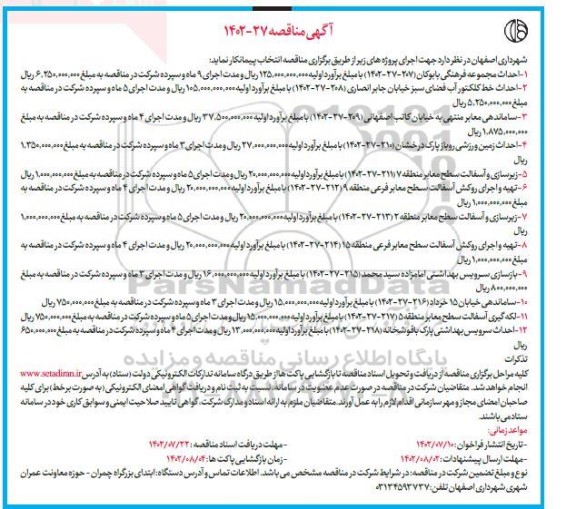 آگهی مناقصه ۲۷-۱۴۰۲
شهرداری اصفهان در نظر دارد جهت اجرای پروژه های زیر از طریق برگزاری مناقصه انتخاب پیمانکار نماید:
۱-احداث مجموعه فرهنگی بابوکان (۲۰۷-۲۷-۱۴۰۲) با مبلغ برآورد اولیه ۱۲۵,۰۰۰,۰۰۰,۰۰۰ ریال و مدت اجرای ۹ ماه و سپرده شرکت در مناقصه به مبلغ ۶,۲۵۰,۰۰۰,۰۰۰ ریال
۲-احداث خط کلکتور آب فضای سبز خیابان جابر انصاری (۲۰۸-۲۷-۱۴۰۲) با مبلغ برآورد اولیه ۱۰۵,۰۰۰,۰۰۰,۰۰۰ ریال و مدت اجرای ۵ ماه و سپرده شرکت در مناقصه به
مبلغ ۵,۲۵۰,۰۰۰,۰۰۰ ریال
۳-ساماندهی معابر منتهی به خیابان کاتب اصفهانی (۲۰۹-۲۷-۱۴۰۲) با مبلغ برآورد اولیه ۳۷,۵۰۰,۰۰۰,۰۰۰ ریال و مدت اجرای ۴ ماه و سپرده شرکت در مناقصه به مبلغ
۱,۸۷۵,۰۰۰,۰۰۰ ریال
۴-احداث زمین ورزشی روباز پارک درخشان (۲۱۰-۲۷-۱۴۰۲) با مبلغ برآورد اولیه ۲۷,۰۰۰,۰۰۰,۰۰۰ ریال و مدت اجرای ۳ ماه و سپرده شرکت در مناقصه به مبلغ ۱,۳۵۰,۰۰۰,۰۰۰
ریال
۵-زیرسازی و آسفالت سطح معابر منطقه ۷ (۲۱۱-۲۷-۱۴۰۲) با مبلغ برآورد اولیه ۲۰,۰۰۰,۰۰۰,۰۰۰ ریال و مدت اجرای ۵ ماه و سپرده شرکت در مناقصه به مبلغ ۱,۰۰۰,۰۰۰,۰۰۰ ریال
۶-تهیه و اجرای روکش آسفالت سطح معابر فرعی منطقه ۹ (۲۱۲-۲۷-۱۴۰۲) با مبلغ برآورد اولیه ۲۰,۰۰۰,۰۰۰,۰۰۰ ریال و مدت اجرای ۴ ماه و سپرده شرکت در مناقصه به
مبلغ ۱,۰۰۰,۰۰۰,۰۰۰ ریال
۷-زیرسازی و آسفالت سطح معابر منطقه ۲ (۲۱۳-۲۷-۱۴۰۲) با مبلغ برآورد اولیه ۲۰,۰۰۰,۰۰۰,۰۰۰ ریال و مدت اجرای ۵ ماه و سپرده شرکت در مناقصه به مبلغ ۱,۰۰۰,۰۰۰,۰۰۰ ریال
۸-تهیه و اجرای روکش آسفالت سطح معابر فرعی منطقه ۱۵ (۲۱۴-۲۷-۱۴۰۲) با مبلغ برآورد اولیه ۲۰,۰۰۰,۰۰۰,۰۰۰ ریال و مدت اجرای ۴ ماه و سپرده شرکت در مناقصه به
مبلغ ۱,۰۰۰,۰۰۰,۰۰۰ ریال
۹-بازسازی سرویس بهداشتی امامزاده سید محمد (۲۱۵-۲۷-۱۴۰۲) با مبلغ برآورد اولیه ۱۶,۰۰۰,۰۰۰,۰۰۰ ریال و مدت اجرای ۳ ماه و سپرده شرکت در مناقصه به مبلغ
۸۰۰,۰۰۰,۰۰۰ ریال
۱۰-ساماندهی خیابان ۱۵ خرداد (۲۱۶-۲۷-۱۴۰۲) با مبلغ برآورد اولیه ۱۵,۰۰۰,۰۰۰,۰۰۰ ریال و مدت اجرای ۳ ماه و سپرده شرکت در مناقصه به مبلغ ۷۵۰,۰۰۰,۰۰۰ ریال
۱۱-لکه گیری آسفالت سطح معابر منطقه ۵ (۲۱۷-۲۷-۱۴۰۲) با مبلغ برآورد اولیه ۱۵,۰۰۰,۰۰۰,۰۰۰ ریال و مدت اجرای ۵ ماه و سپرده شرکت در مناقصه به مبلغ ۷۵۰,۰۰۰,۰۰۰ ریال
۱۲-احداث سرویس بهداشتی پارک بافوشخانه (۲۱۸-۲۷-۱۴۰۲) با مبلغ برآورد اولیه ۱۳,۰۰۰,۰۰۰,۰۰۰ ریال و مدت اجرای ۴ ماه و سپرده شرکت در مناقصه به مبلغ ۶۵۰,۰۰۰,۰۰۰
ریال
تذکرات
کلیه مراحل برگزاری مناقصه از دریافت و تحویل اسناد مناقصه تا بازگشایی پاکت ها از طریق درگاه سامانه تدارکات الکترونیکی دولت (ستاد) به آدرس www.setadiran.ir
انجام خواهد شد. متقاضیان شرکت در مناقصه در صورت عدم عضویت در سامانه، نسبت به ثبت نام و دریافت گواهی امضای الکترونیکی (به صورت برخط) برای کلیه
صاحبان امضای مجاز و مهر سازمانی اقدام لازم را به عمل آورند. متقاضیان ملزم به ارائه اسناد و مدارک شرکت، گواهی تایید صلاحیت ایمنی و سوابق کاری خود در سامانه
ستاد می باشند.
مواعد زمانی:
-تاریخ انتشار فراخوان: ۱۴۰۲/۰۷/۱۰ -مهلت دریافت اسناد مناقصه: ۱۴۰۲/۰۷/۲۲
-مهلت ارسال پیشنهادات: ۱۴۰۲/۰۸/۰۲ -زمان بازگشایی پاکت ها: ۱۴۰۲/۰۸/۰۴
نوع و مبلغ تضمین شرکت در مناقصه: در شرایط شرکت در مناقصه مشخص می باشد. اطلاعات تماس و آدرس دستگاه: ابتدای بزرگراه چمران - حوزه معاونت عمران
شهری شهرداری اصفهان تلفن: ۰۳۱۳۴۵۹۳۷۳۷
ParsNamadData
پایگاه اطلاع رسانی مناقصه و مزایده